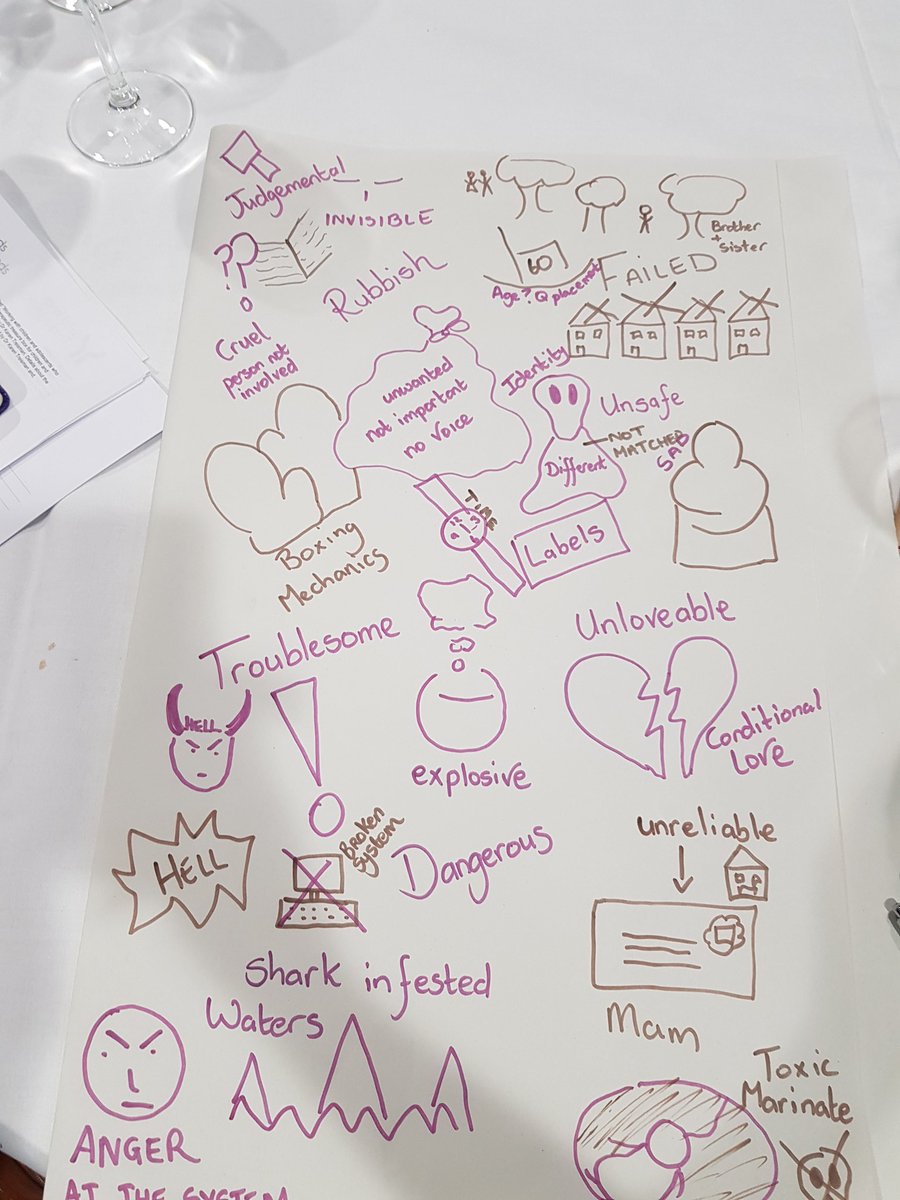 Judgemental
INVISIBLE
??
Brother
+
sister
60
Age? Q placement
FAILED
Rubbish
Cruel
person not
involved
unwanted
not important
no voice
Identity
Unsafe
NOT
MATCHED
SAD
Different
TIME
Labels
Boxing
Mechanics
Troublesome
Unloveable
HELL
Conditional
Love
explosive
HELL
Broken
System
Dangerous
unreliable
Shark infested
Waters
Mam
Toxic
Marinate
ANGER
AT THE SYSTEM